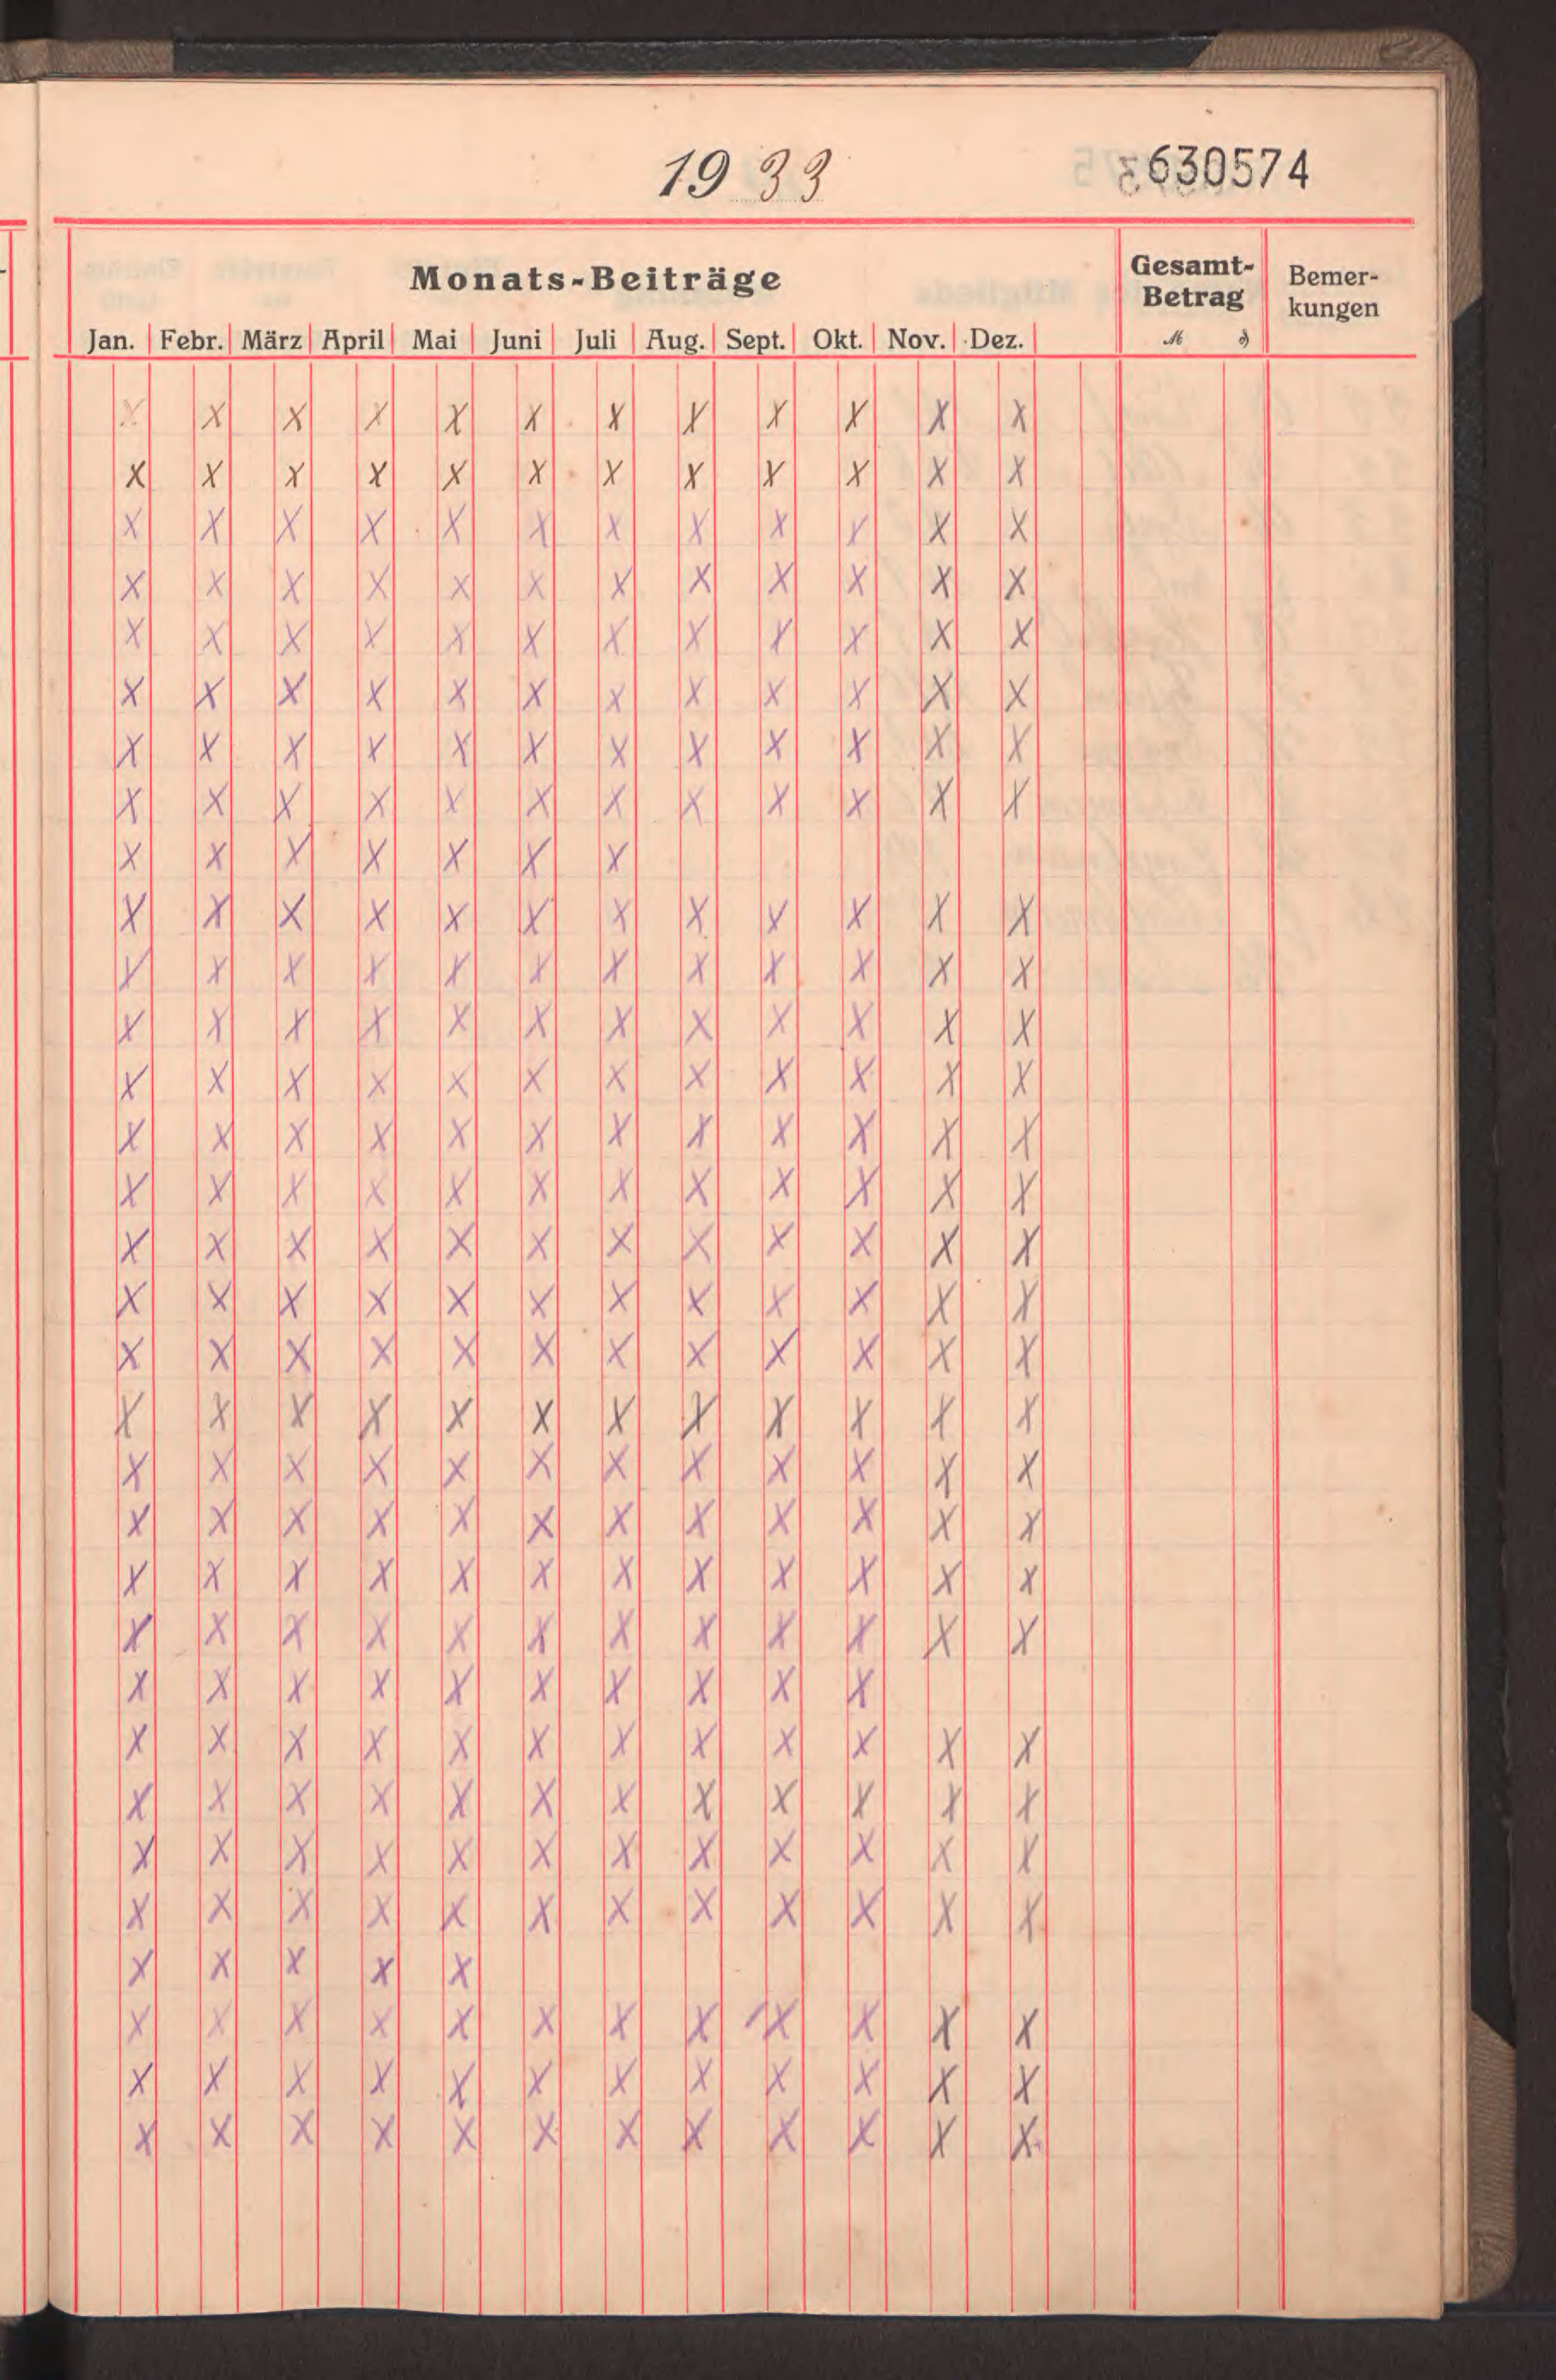 1933
630574
Monats-Beiträge
Gesamt-
Betrag
Bemer-
kungen
Jan. Febr. März April Mai Juni Juli Aug. Sept. Okt. Nov. Dez. M ₰
X X X X X X X X X X X X
X X X X X X X X X X X X
X X X X X X X X X X X X
X X X X X X X X X X X X
X X X X X X X X X X X X
X X X X X X X X X X X X
X X X X X X X X X X X X
X X X X X X X X X X X X
X X X X X X X
X X X X X X X X X X X X
X X X X X X X X X X X X
X X X X X X X X X X X X
X X X X X X X X X X X X
X X X X X X X X X X X X
X X X X X X X X X X X X
X X X X X X X X X X X X
X X X X X X X X X X X X
X X X X X X X X X X X X
X X X X X X X X X X X X
X X X X X X X X X X X X
X X X X X X X X X X X X
X X X X X X X X X X X X
X X X X X X X X X X X X
X X X X X X X X X X
X X X X X X X X X X X X
X X X X X X X X X X X X
X X X X X X X X X X X X
X X X X X X X X X X X X
X X X X X
X X X X X X X X X X X X
X X X X X X X X X X X X
X X X X X X X X X X X X